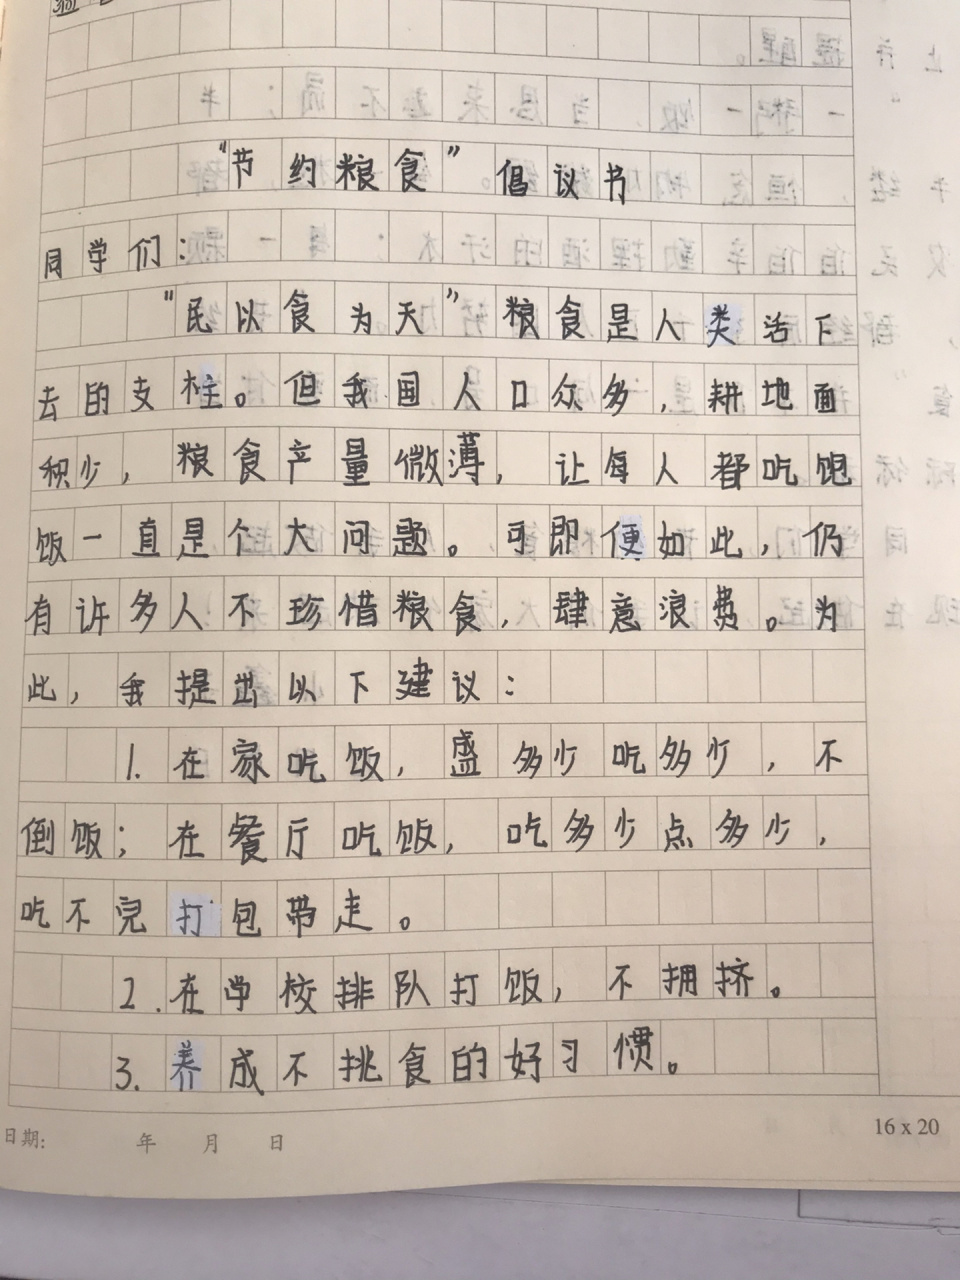 "节约粮食"倡议书
同学们:
"民以食为天"粮食是人类活下
去的支柱。但我国人口众多,耕地面
积少,粮食产量微薄,让每人都吃饱
饭一直是个大问题。可即便如此,仍
有许多人不珍惜粮食,肆意浪费。为
此,我提出以下建议:
1.在家吃饭,盛多少吃多少,不
倒饭;在餐厅吃饭,吃多少点多少,
吃不完打包带走。
2.在学校排队打饭,不拥挤。
3.养成不挑食的好习惯。
日期: 年 月 日
16 x 20